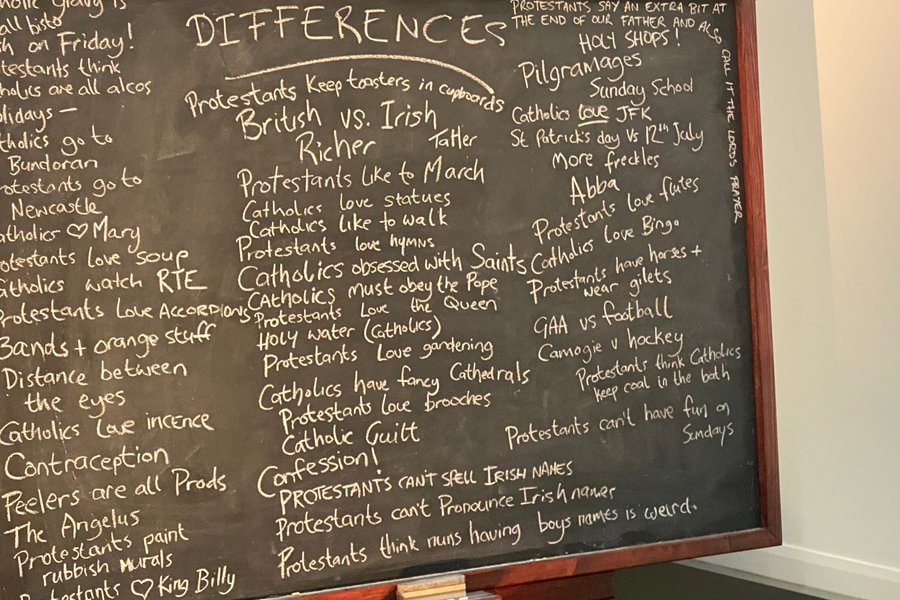 DIFFERENCES
holic Gravy is
all bisto
sh on Friday!
testants think
holics are all alcos
olidays —
tholics go to
Bundoran
rotestants go to
Newcastle
atholics ♡ Mary
otestants love soup
atholics watch RTE
Protestants Love Accordions
Bands + orange stuff
Distance between
the eyes
Catholics Love incence
Contraception
Peelers are all Prods
The Angelus
Protestants paint
rubbish murals
Protestants ♡ King Billy
Protestants Keep toasters in cupboards
British vs. Irish
Richer
Tatler
Protestants like to March
Catholics love statues
Catholics like to walk
Protestants love hymns
Catholics obsessed with Saints
Catholics must obey the Pope
Protestants Love the Queen
Holy water (Catholics)
Protestants Love gardening
Catholics have fancy Cathedrals
Protestants love brooches
Catholic Guilt
Confession!
PROTESTANTS CAN'T SPELL IRISH NAMES
Protestants can't Pronounce Irish names
Protestants think nuns having boys names is weird.
PROTESTANTS SAY AN EXTRA BIT AT
THE END OF OUR FATHER AND ALSO
CALL IT THE LORDS PRAYER
HOLY SHOPS!
Pilgramages
Sunday School
Catholics love JFK
St Patrick's day Vs 12th July
More freckles
Abba
Protestants love flutes
Catholics love Bingo
Protestants have horses +
wear gilets
GAA vs football
Camogie v hockey
Protestants think Catholics
keep coal in the bath
Protestants can't have fun on
Sundays